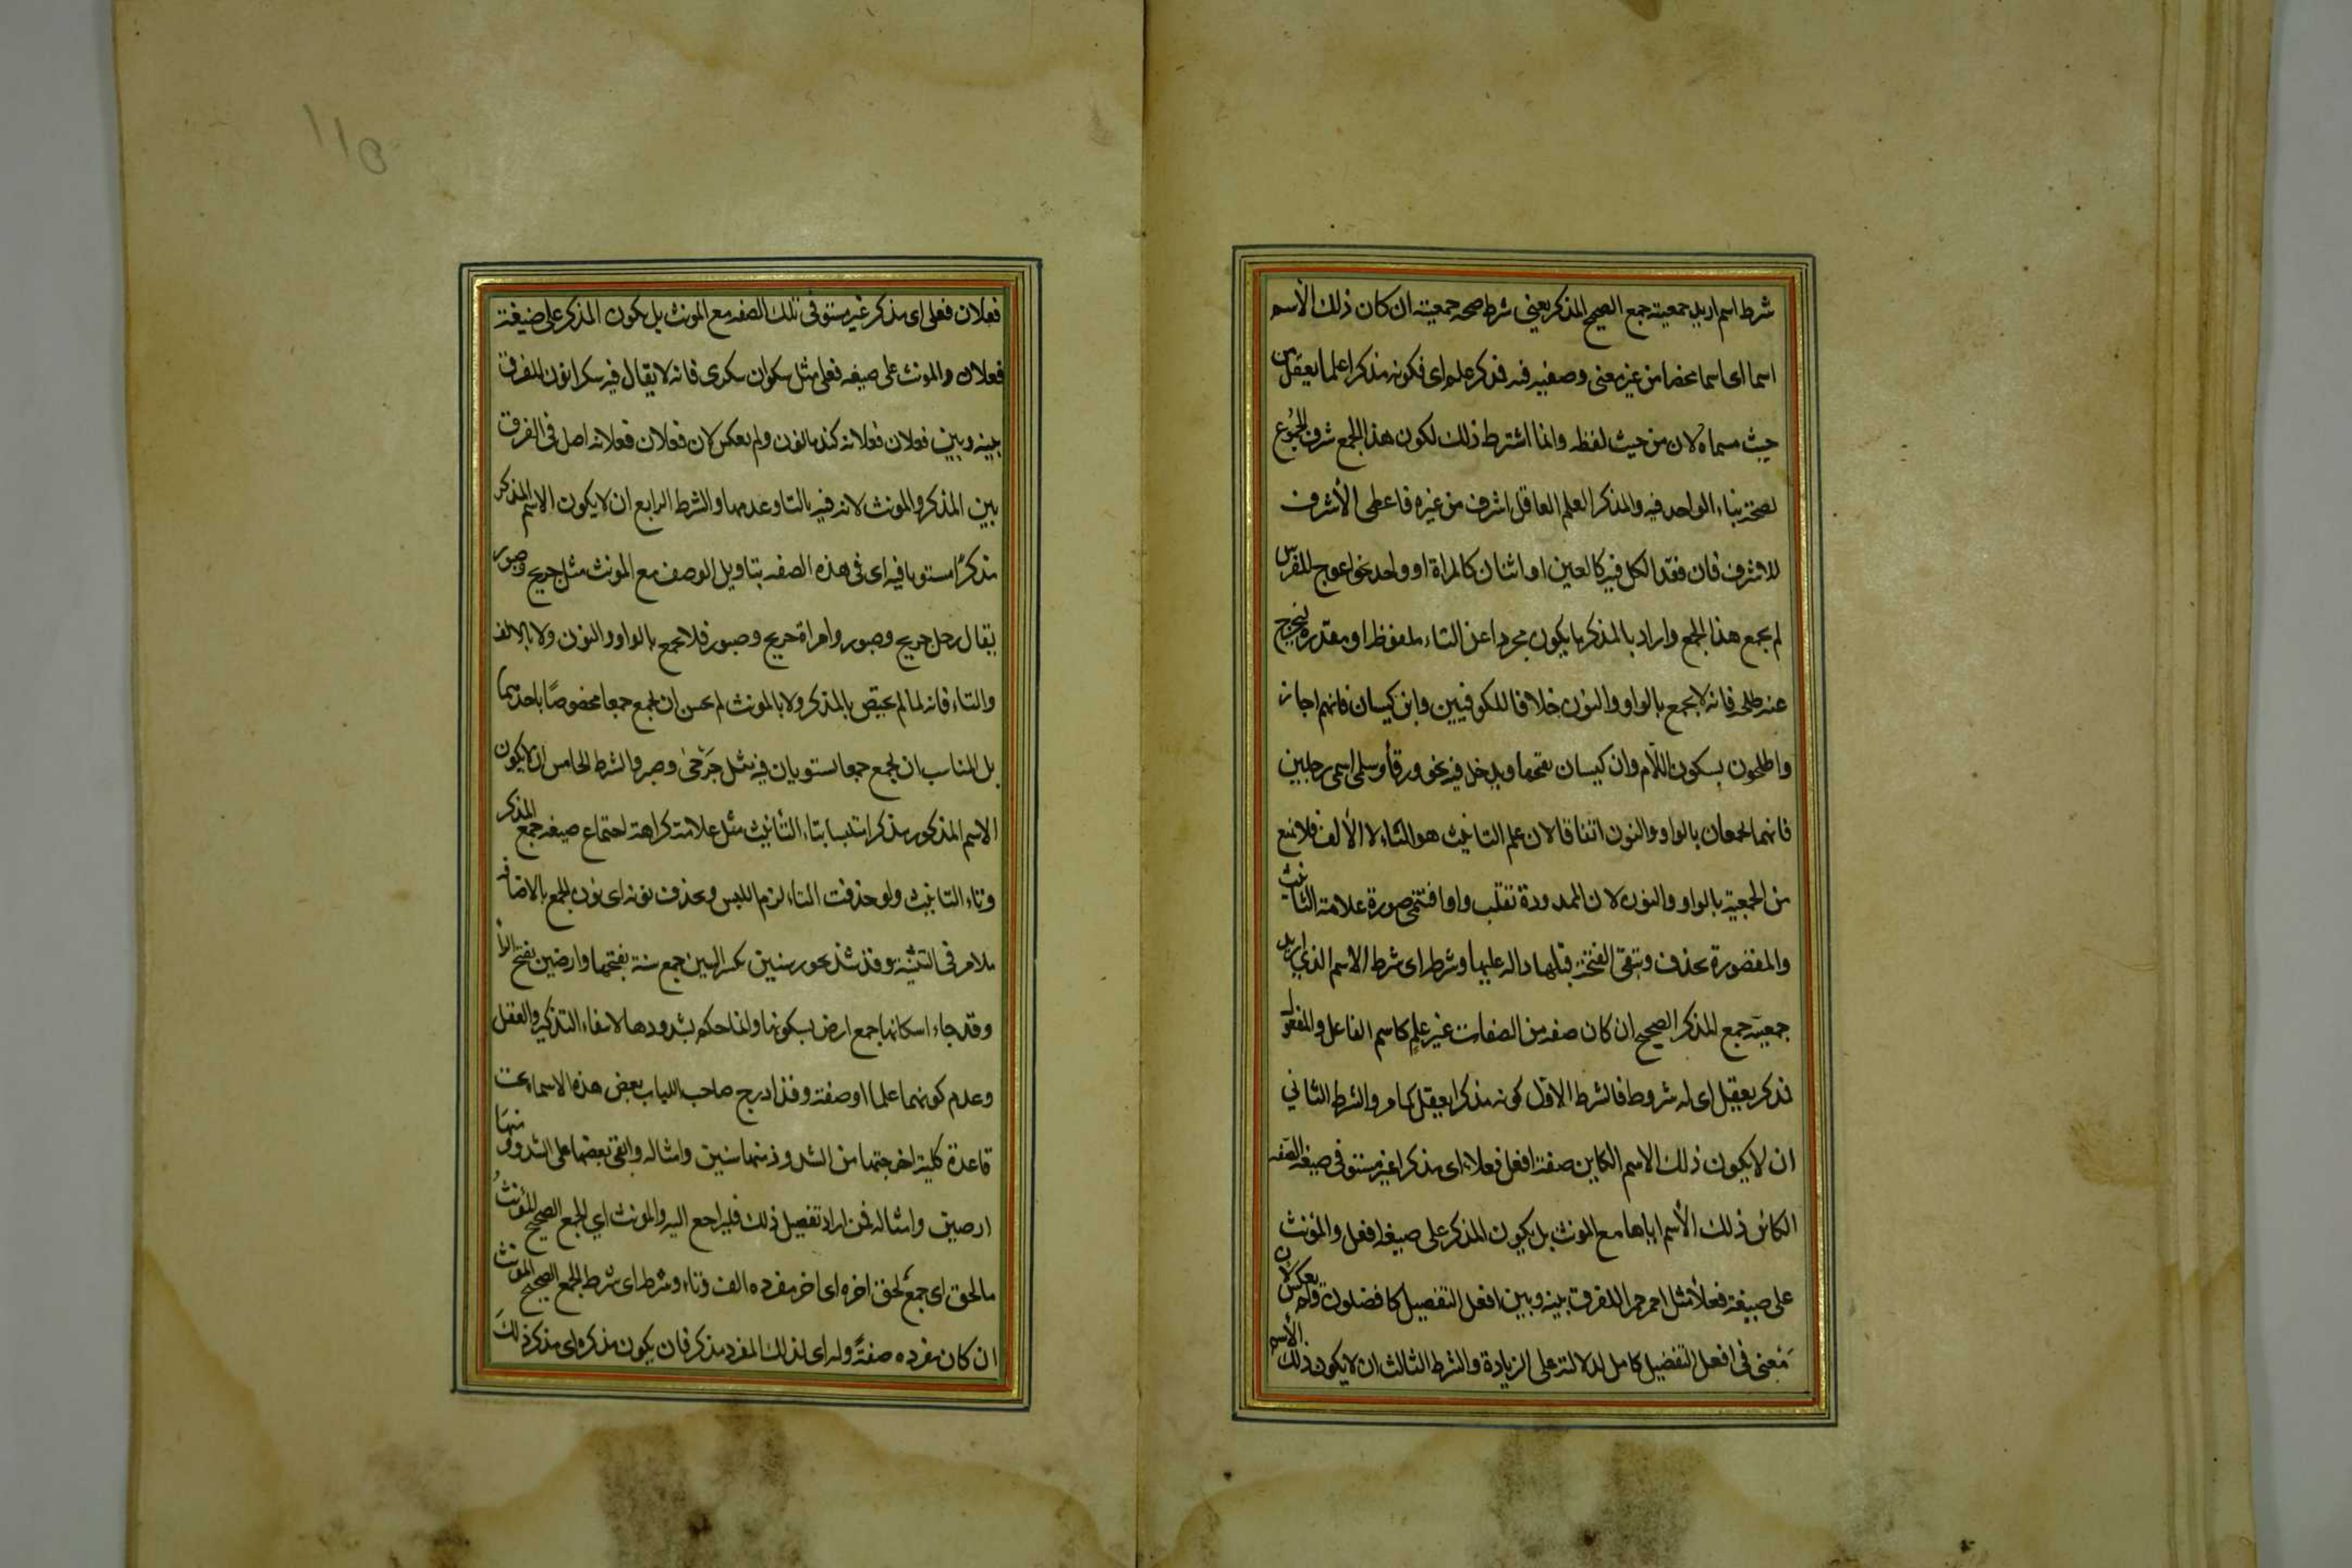 شرط اسم اريد جمعيته جمع الصحيح المذكر يعني شرط صحة جمعيته ان كان ذلك الاسم
اسما اى اسما محضا من غير معنى وصفيه فيه فذكر علم اى فكونه مذكرا علما يعقل من
حيث مسماه لا من حيث لفظه وانما اشترط ذلك لكون هذا الجمع شرف الجموع
لصحة بناء الواحد فيه والمذكر العلم العاقل اشرف من غيره فاعطى الأشرف
للاشرف فان فقد الكل فيه كالعين او اثنان كالمراة او واحد نحو اعوج للفرس
لم يجمع هذا الجمع واراد بالمذكر ما يكون مجردا عن التاء ملفوظا او مقدره ليخرج
عنه طلحه فانه لا يجمع بالواو والنون خلافا للكوفيين وابن كيسان فانهم اجاز
واطلحون بسكون اللام وابن كيسان بفتحها ويدخل فيه نحو ورقأ وسلمى اسمى رجلين
فانهما يجمعان بالواو والنون اتفاقا لان علم التانيث هو التاء لا الألف فلا يمنع
من الجمعية بالواو والنون لان الممدودة تقلب واوا فتنمحى صورة علامة التانيث
والمقصورة تحذف وتبقى الفتحة قبلها داله عليها وشرطه اى شرط الاسم الذى اريد
جمعيته جمع المذكر الصحيح ان كان صفه من الصفات غير علم كاسم الفاعل والمفعول
فذكر يعقل اى له شروط فالشرط الاول كونه مذكرا يعقل كما مر والشرط الثاني
ان لا يكون ذلك الاسم الكاين صفة افعل فعلاء اى مذكرا غير مستو فى صيغة الصفه
الكائن ذلك الأسم اياها مع المونث بل يكون المذكر على صيغه افعل والمؤنث
على صيغة فعلأ مثل احمر حمرا للفرق بينه وبين افعل التفضيل كافضلون ولم يعكس لان
معنى فى افعل التفضيل كامل لدلالته على الزيادة والشرط الثالث ان لا يكون ذلك الأسم
فعلان فعلى اى مذكر غير مستو فى تلك الصفه مع المونث بل يكون المذكر على صيغة
فعلان والمونث على صيغه فعلى مثل سكران سكرى فانه لا يقال فيه سكرانون للفرق
بينه وبين فعلان فعلانه كندمانون ولم يعكس لان فعلان فعلانه اصل فى الفرق
بين المذكر والمونث لانه فيه بالتا وعدمها والشرط الرابع ان لا يكون الاسم المذكر
مذكرًا مستويا فيه اى فى هذه الصفه بتاويل الوصف مع المونث مثل جريح وصبور
يقال رجل جريح وصبور وامراة جريح وصبور فلا يجمع بالواو والنون ولا بالالف
والتاء فانه لما لم يختص بالمذكر ولا بالمونث لم يحسن ان يجمع جمعا مخصوصًا باحدهما
بل المناسب ان يجمع جمعا يستويان فيه مثل جَرْحى وصبر والشرط الخامس ان لا يكون
الاسم المذكور مذكرا متلبسا بتاء التأنيث مثل علامة كراهة اجتماع صيغه جمع المذكر
وتاء التانيث ولو حذفت التاء لزم اللبس ويحذف نونه اى نون الجمع بالاضافه
لما مر فى التثنية وقد شذ نحو سنين بكسر السين جمع سنة بفتحها وارضين بفتح الرأ
وقد جاء اسكانها جمع ارض بسكونها وانما حكم بشذوذها لانتفاء التذكير والعقل
وعدم كونهما علما او صفة وقد ادرج صاحب اللباب بعض هذه الاسماء تحت
قاعدة كلية اخرجتها من الشذوذ منها سنين وامثاله وابقى بعضها على الشذوذ منها
ارضين وامثاله فمن اراد تفصيل ذلك فليراجع اليه والمونث اي الجمع الصحيح المؤنث
ما لحق اى جمع لحق اخره اى اخر مفرده الف وتاء وشرطه اى شرط الجمع الصحيح المؤنث
ان كان مفرده صفةً وله اى لذلك المفرد مذكر فان يكون مذكره اى مذكر ذلك